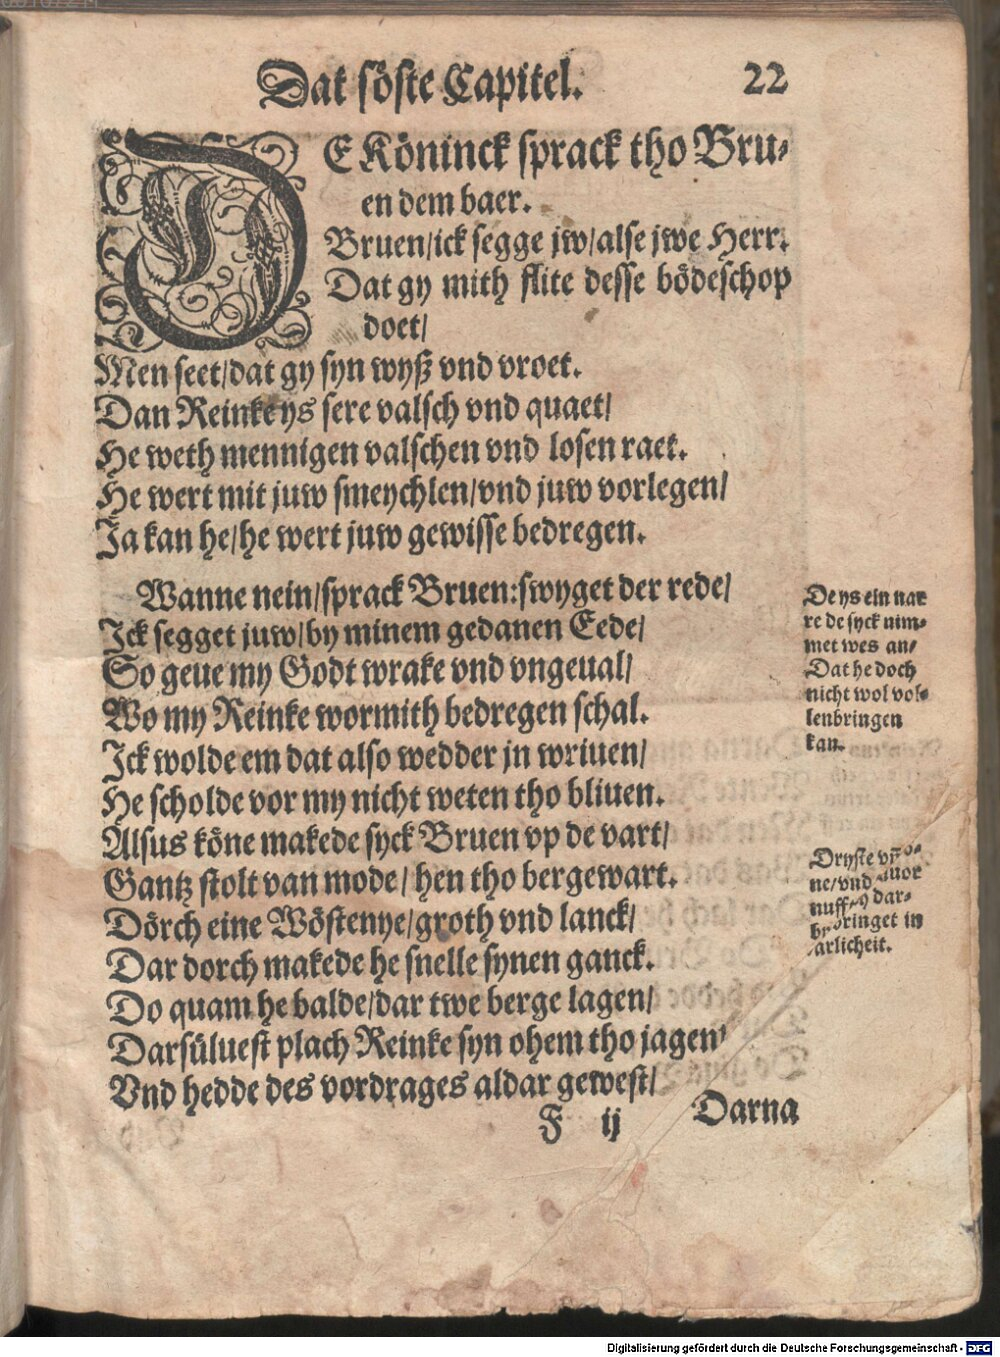 Dat söste Capitel. 22
DE Köninck sprack tho Bru-
en dem baer.
Bruen/ick segge jw/alse jwe Herr.
Dat gy mith flite desse bödeschop
doet/
Men seet/dat gy syn wyß vnd vroet.
Dan Reinke ys sere valsch vnd quaet/
He weth mennigen valschen vnd losen raet.
He wert mit juw smeychlen/vnd juw vorlegen/
Ja kan he/he wert juw gewisse bedregen.
Wanne nein/sprack Bruen:swyget der rede/
Jck segget juw/by minem gedanen Eede/
So geue my Godt wrake vnd vngeual/
Wo my Reinke wormith bedregen schal.
Jck wolde em dat also wedder jn wriuen/
He scholde vor my nicht weten tho bliuen.
Alsus köne makede syck Bruen vp de vart/
Gantz stolt van mode/ hen tho bergewart.
Dörch eine Wöstenye/groth vnd lanck/
Dar dorch makede he snelle synen ganck.
Do quam he balde/dar twe berge lagen/
Darsüluest plach Reinke syn ohem tho jagen/
Vnd hedde des vordrages aldar gewest/
F ij Darna
De ys ein nar
re de syck nim-
met wes an/
Dat he doch
nicht wol vol-
lenbringen
kan.
Dryste
ne/vnd
nuff dar-
bringet in
arlicheit.
Digitalisierung gefördert durch die Deutsche Forschungsgemeinschaft - DFG